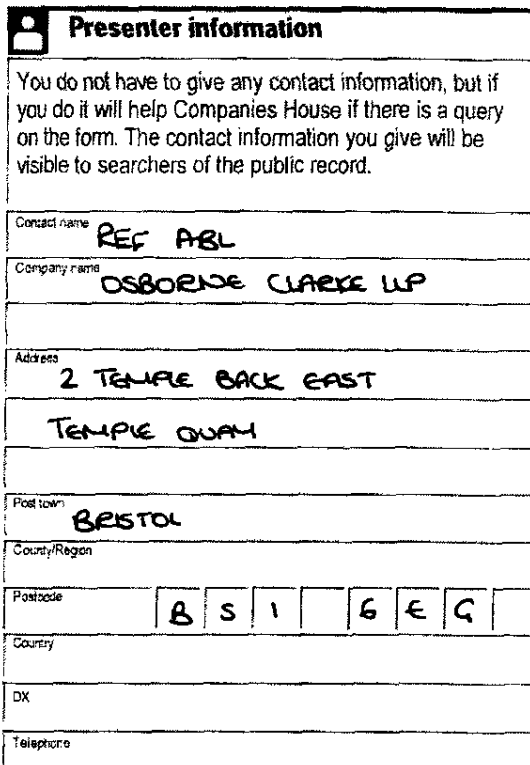 Presenter information
You do not have to give any contact information, but if
you do it will help Companies House if there is a query
on the form. The contact information you give will be
visible to searchers of the public record.
Contact name REF ABL
Company name OSBORNE CLARKE LLP
Address 2 TEMPLE BACK EAST
TEMPLE QUAY
Post town BRISTOL
County/Region
Postcode BS1 6EG
Country
DX
Telephone